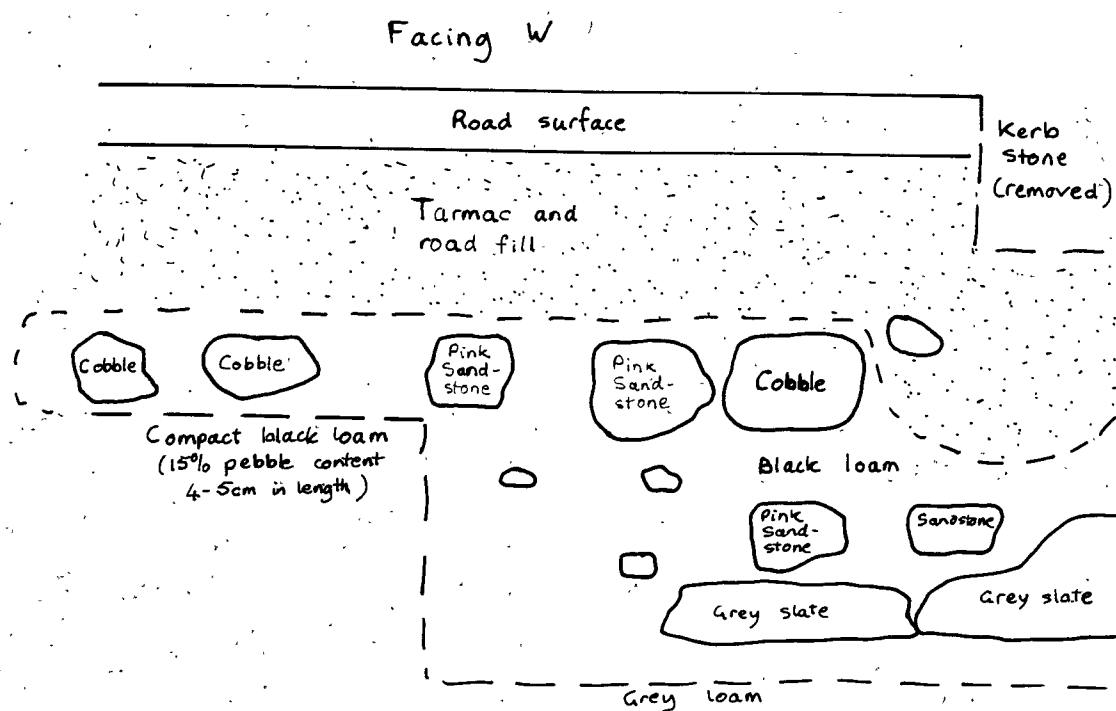 Facing W
Road surface
Kerb
Stone
(removed)
Tarmac and
road fill
Cobble
Cobble
Pink
Sand-
stone
Pink
Sand-
stone
Cobble
Compact black loam
(15% pebble content
4-5cm in length)
Black loam
Pink
Sand-
stone
Sandstone
Grey slate
Grey slate
Grey loam